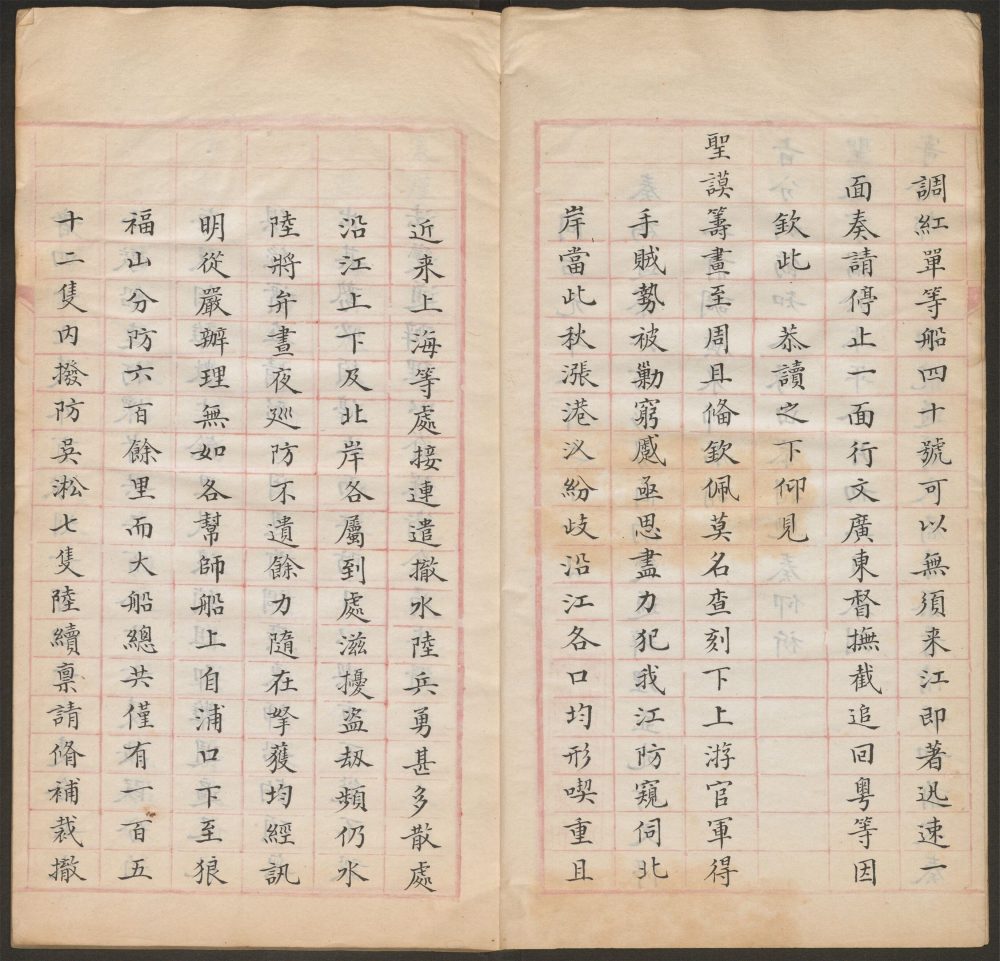 調紅單等船四十號可以無須来江即著迅速一
面奏請停止一面行文廣東督撫截追回粤等因
欽此恭讀之下仰見
聖謨籌畫至周且俻欽佩莫名查刻下上游官軍得
手賊勢被勦窮蹙亟思盡力犯我江防窺伺北
岸當此秋漲港汊紛歧沿江各口均形喫重且
近来上海等處接連遣撤水陸兵勇甚多散處
沿江上下及北岸各屬到處滋擾盗刼頻仍水
陸將弁晝夜巡防不遺餘力隨在拏獲均經訊
明從嚴辦理無如各幫師船上自浦口下至狼
福山分防六百餘里而大船總共僅有一百五
十二隻內撥防吳淞七隻陸續禀請脩補裁撤